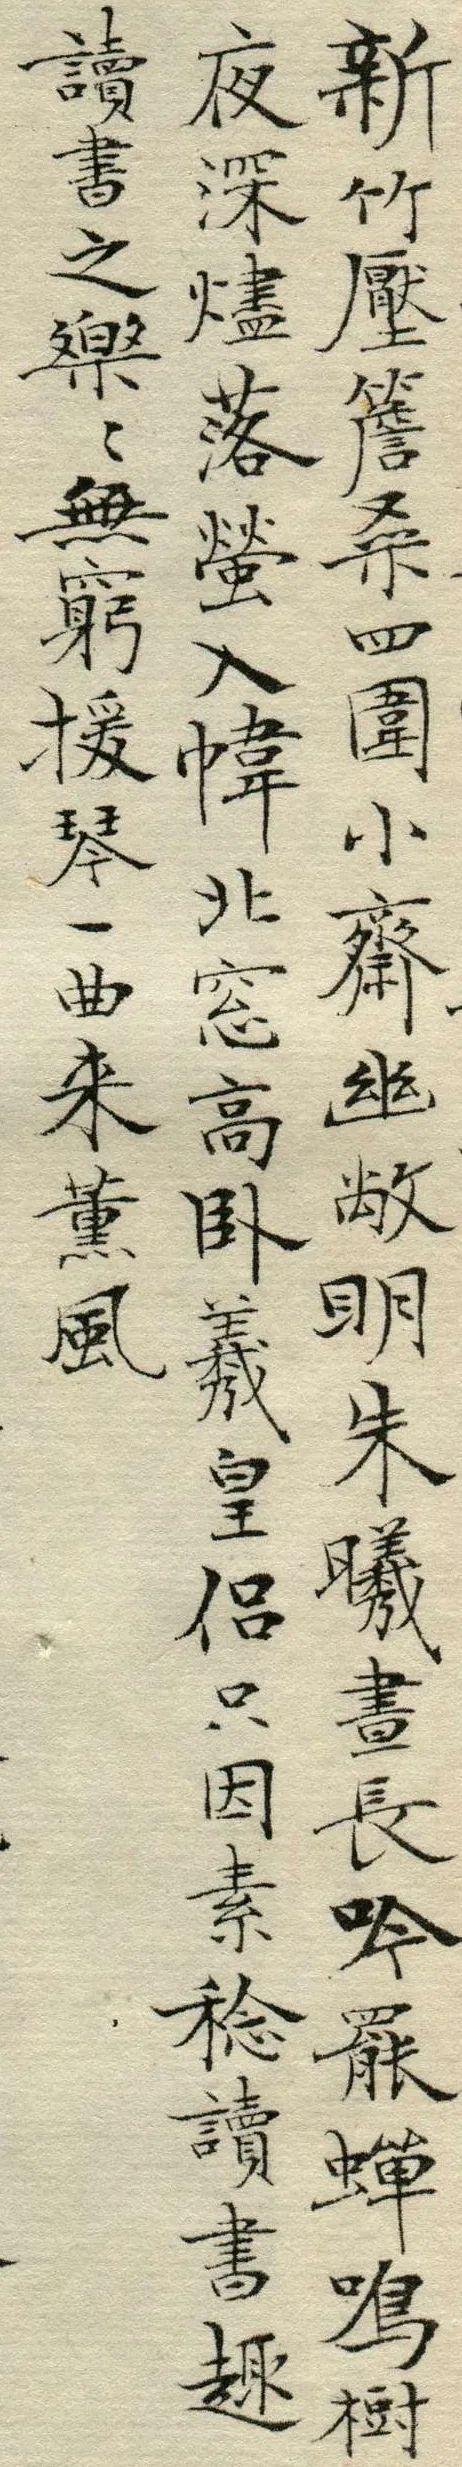 新竹壓簷桑四圍小齋幽敞明朱曦晝長吟罷蟬鳴樹
夜深燼落螢入幃北窓高卧羲皇侶只因素稔讀書趣
讀書之樂〻無窮援琴一曲来薰風